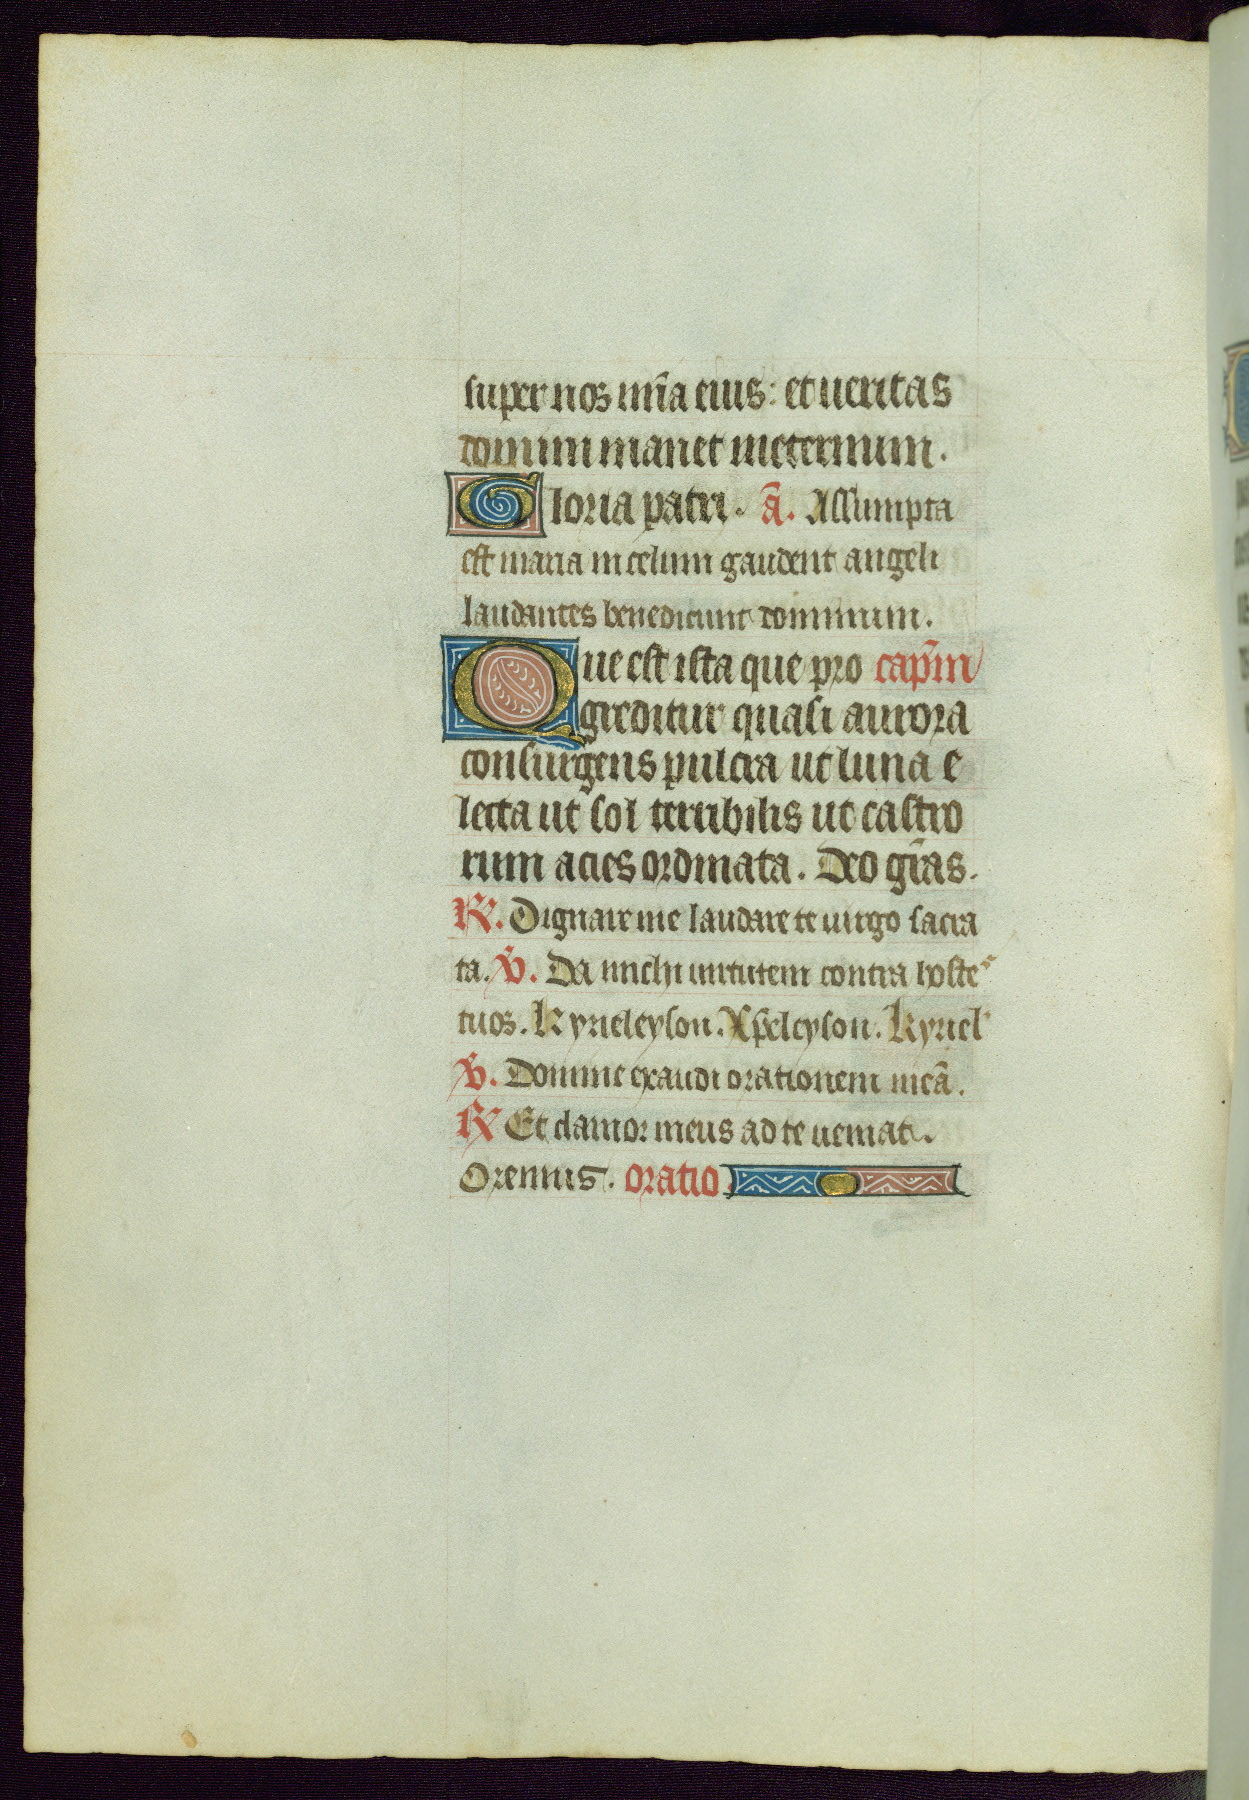 super nos mīa eius: et ueritas
domini manet ineternum.
Gloria patri. ā. Assumpta
est maria in celum gaudent angeli
laudantes benedicunt dominum.
Que est ista que pro capm̄
greditur quasi aurora
consurgens pulcra ut luna e
lecta ut sol terribilis ut castro
rum acies ordinata. Deo gr̄as.
℟. Dignare me laudare te uirgo sacra
ta. ℣. Da michi uirtutem contra hostes
tuos. Kyrieleyson. Xp̄eleyson. Kyriel'
℣. Domine exaudi orationem meā.
℟ Et clamor meus ad te ueniat.
Oremus. oratio.